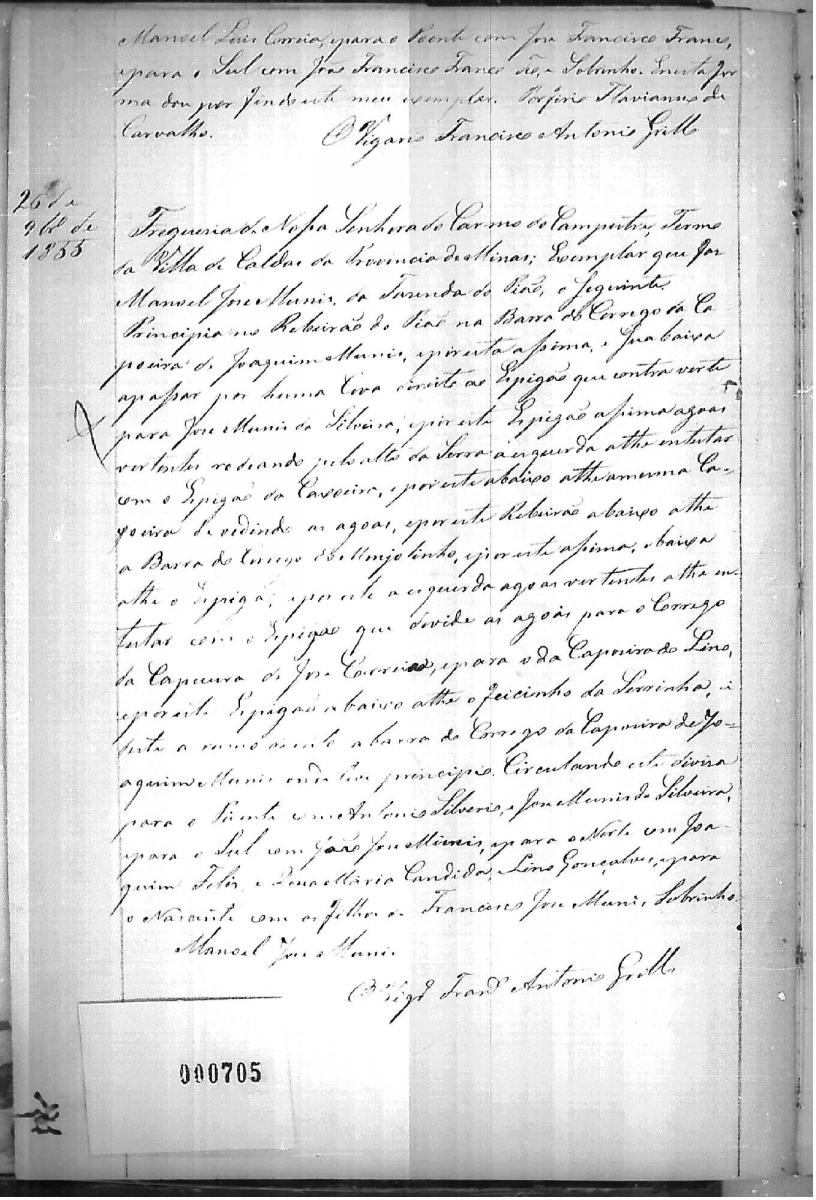 Manoel Luis Correia, epara o Poente com Jose Francisco Franco,
epara o Sul com João Francisco Franco Tio, e Sobrinho. Enesta for
ma dou por findo este meu exemplar. Porfirio Flavianno de
Carvalho.
O Vigario Francisco Antonio Grillo
26 de
9br de
1855
Freguesia de Nossa Senhora do Carmo do Campestre, Termo
da Villa de Caldas da Provincia de Minas; Exemplar que faz
Manoel Jose Munis, da Fazenda do Pião, o seguinte.
Principia no Ribeirão do Pião na Barra do Corrego da Ca
poeira de Joaquim Munis, epor esta assima, e sua baixa
apassar por huma Cova direito ao Espigão que contra verte
para Jose Munis da Silveira, epor este Espigão assima agoas
vertentes rodeando pelo alto da Serra a esquerda athe entestar
com o Espigão da Caxoeira, epor este abaixo athe amesma Ca-
xoeira devedindo as agoas, epor este Ribeirão abaixo athe
a Barra do Corrego do Monjolinho, epor este assima, ebaixa
athe o Espigão, epor este a esquerda agoas vertentes athe en-
testar com o Espigão que devide as agoas para o Corrego
da Capueira de Jose Correia, epara o da Capoeira do Lino,
epor este Espigão abaixo athe o feicinho da Serrinha, e
deste a rumo direito a barra do Corrego da Capoeira de Jo-
aquim Munis onde teve principio. Circulando esta divisa
para o Poente com Antonio Silverio, e Jose Munis da Silveira,
epara o Sul com João Jose Munis, epara o Norte com Joa-
quim Felis, e Dona Maria Candida, e Lino Gonçalves, epara
o Nascente com os filhos de Francisco Jose Munis Sobrinho.
Manoel Jose Munis
O Vigro Franco Antonio Grillo
000705